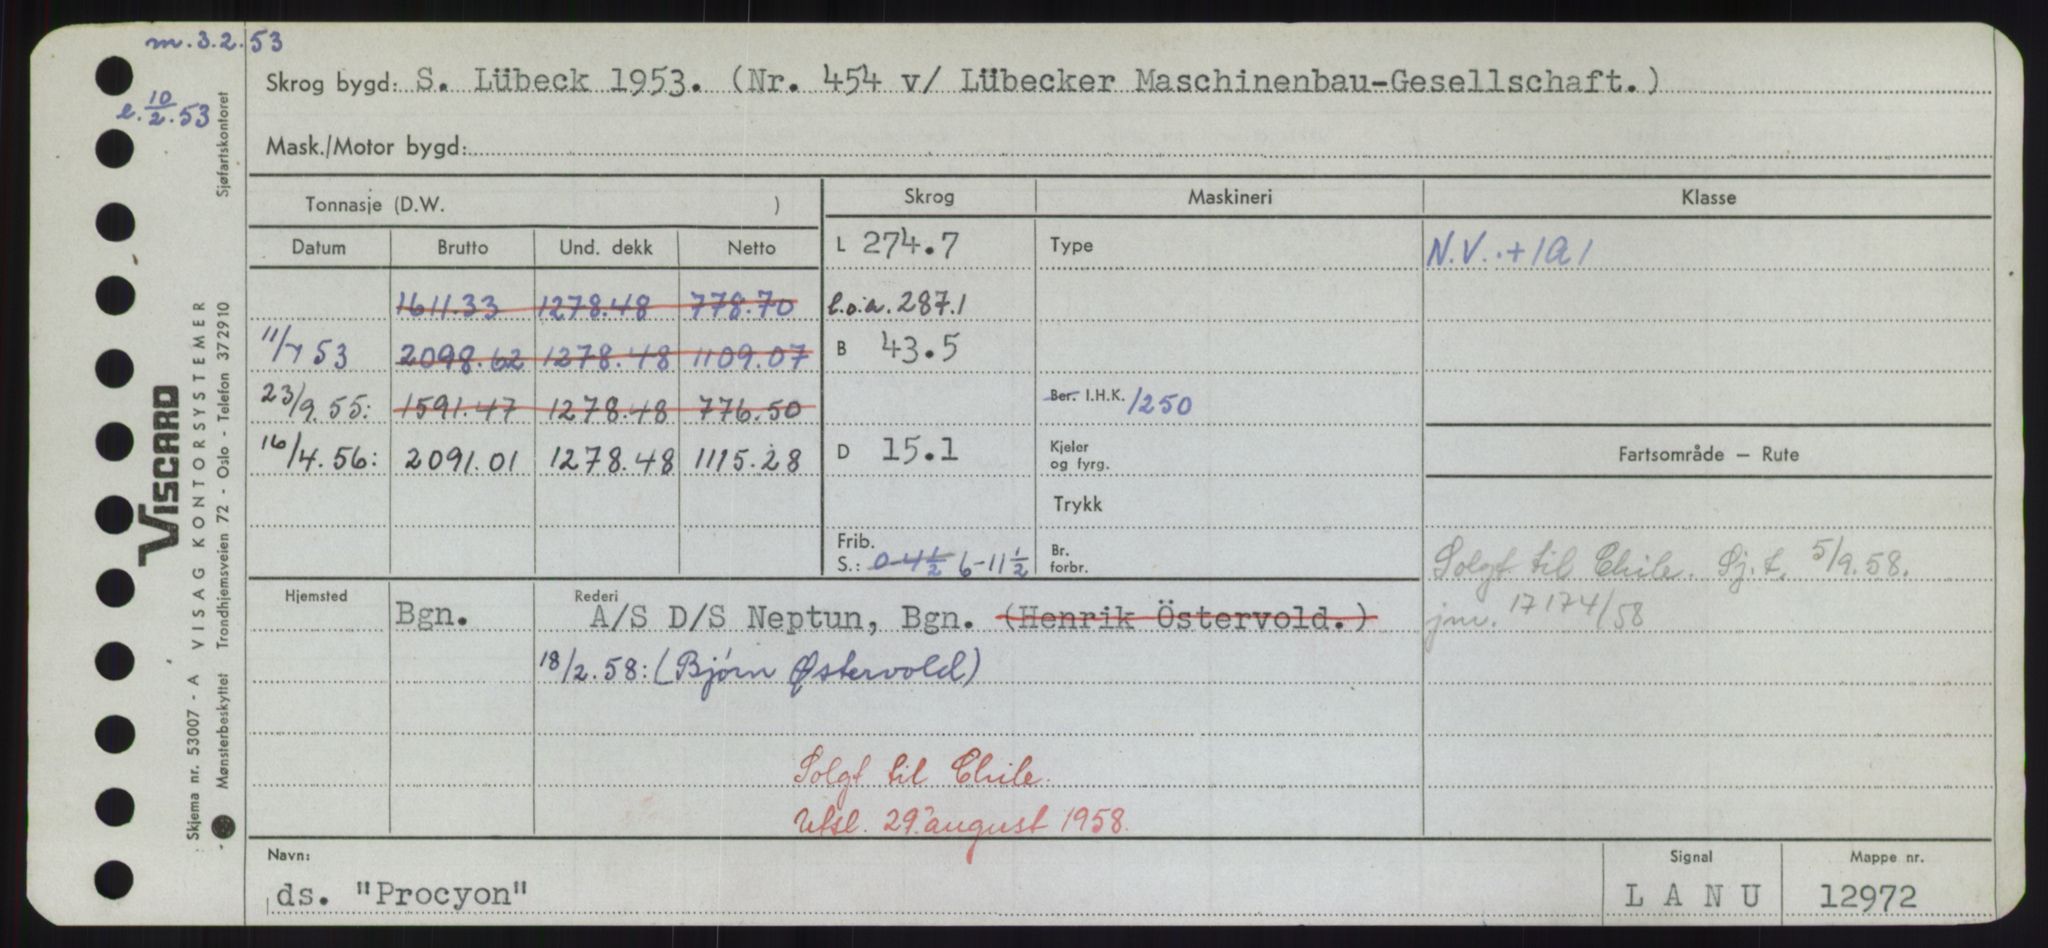 m. 3.2.53
e. 10/2.53
Skrog bygd: S. Lübeck 1953. (Nr. 454 v/ Lübecker Maschinenbau-Gesellschaft.)
Mask./Motor bygd:
Tonnasje (D.W. )
Skrog Maskineri Klasse
Datum Brutto Und. dekk Netto
L 274.7 Type N.V. +1A1
1611.33 1278.48 778.70 l.o.a. 287.1
11/7 53 2098.62 1278.48 1109.07 B 43.5
23/9.55: 1591.47 1278.48 776.50 Ber. I.H.K. 1250
16/4.56: 2091.01 1278.48 1115.28 D 15.1 Kjeler og fyrg. Fartsområde — Rute
Trykk
Frib. S.: 0-4½ 6-11½ Br. forbr. Solgt til Chile. Sj.t. 5/9.58.
jnr. 17174/58
Hjemsted Bgn. Rederi A/S D/S Neptun, Bgn. (Henrik Östervold.)
18/2.58: (Bjørn Østervold)
Solgt til Chile.
Utsl. 29. august 1958.
Navn: ds. "Procyon" Signal L A N U Mappe nr. 12972
VISCARD
VISAG KONTORSYSTEMER
Skjema nr. 53007 - A
Mønsterbeskyttet Trondhjemsveien 72 - Oslo - Telefon 372910
Sjøfartskontoret